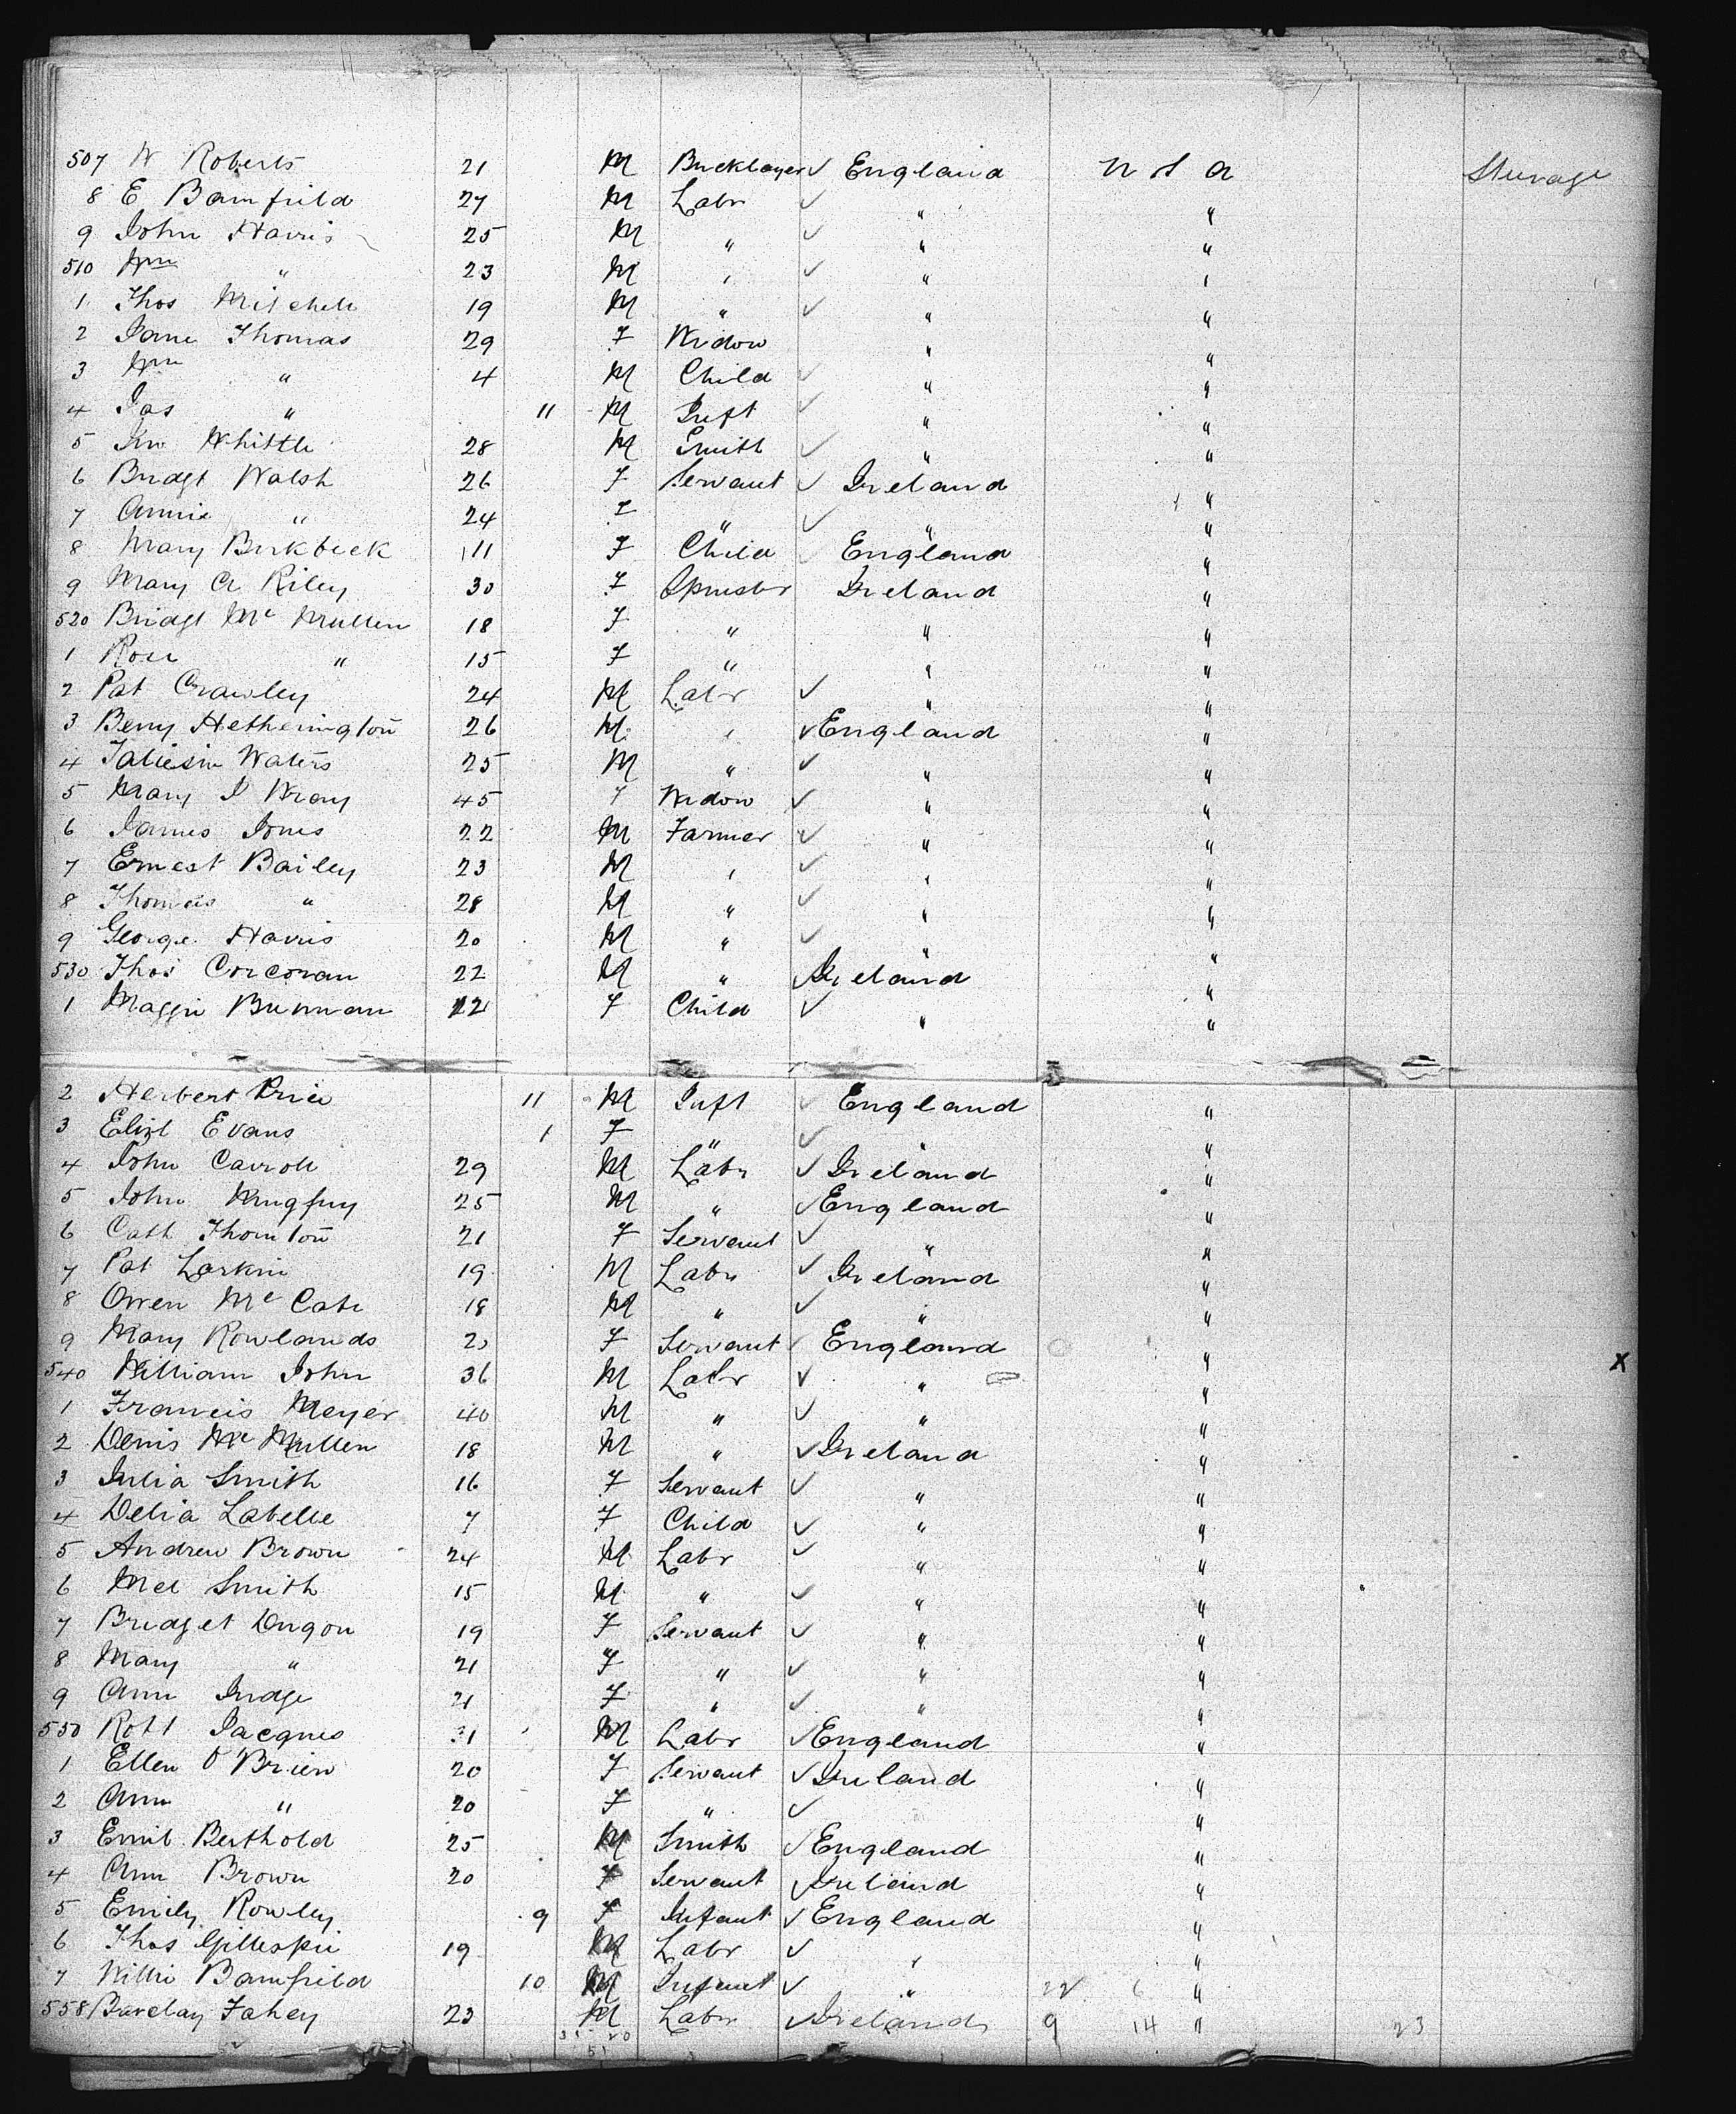 507 W Roberts 21 M Bricklayer ✓ England U S A Steerage
8 E Bamfield 27 M Labr ✓ " "
9 John Harris 25 M " ✓ " "
510 Wm " 23 M " ✓ " "
1 Thos Mitchell 19 M " ✓ " "
2 Jane Thomas 29 F Widow " "
3 Wm " 4 M Child ✓ " "
4 Jas " 11 M Inft ✓ " "
5 Jno Whittle 28 M Smith ✓ " "
6 Bridgt Walsh 26 F Servant ✓ Ireland "
7 Annie " 24 F " ✓ " "
8 Mary Birkbeck 11 F Child ✓ England "
9 Mary A Riley 30 F Spinster Ireland "
520 Bridgt Mc Mullen 18 F " " "
1 Rose " 15 F " " "
2 Pat Crawley 24 M Labr ✓ " "
3 Benj Hetherington 26 M " ✓ England "
4 Taliesin Waters 25 M " ✓ " "
5 Mary J Wray 45 F Widow ✓ " "
6 James Jones 22 M Farmer ✓ " "
7 Ernest Bailey 23 M " ✓ " "
8 Thomas " 28 M " ✓ " "
9 George Harris 20 M " ✓ " "
530 Thos Corcoran 22 M " ✓ Ireland "
1 Maggie Brennan 12 F Child ✓ " "
2 Herbert Price 11 M Inft ✓ England "
3 Elizt Evans 1 F " ✓ " "
4 John Carroll 29 M Labr ✓ Ireland "
5 John 25 M " ✓ England "
6 Cath Thornton 21 F Servant ✓ " "
7 Pat Larkin 19 M Labr ✓ Ireland "
8 Owen Mc Cabe 18 M " ✓ " "
9 Mary Rowlands 20 F Servant ✓ England "
540 William John 36 M Labr ✓ " " X
1 Francis Meyer 40 M " ✓ " "
2 Denis Mc Mullen 18 M " ✓ Ireland "
3 Julia Smith 16 F Servant ✓ " "
4 Delia Labelle 7 F Child ✓ " "
5 Andrew Brown 24 M Labr ✓ " "
6 Smith 15 M " ✓ " "
7 Bridget Dugon 19 F Servant ✓ " "
8 Mary " 21 F " ✓ " "
9 Ann Judge 21 F " ✓ " "
550 Robt Jacques 31 M Labr ✓ England "
1 Ellen O'Brien 20 F Servant ✓ Ireland "
2 Ann " 20 F " ✓ "
3 Emil Berthold 25 M Smith ✓ England "
4 Ann Brown 20 F Servant ✓ Ireland "
5 Emily Rowley 9 F Infant ✓ England "
6 Thos Gillespie 19 M Labr ✓ " "
7 Willie Bamfield 10 M Infant ✓ " 22 6 "
558 Barclay Fahey 23 M Labr ✓ Ireland 9 14 " 23
31 20
51